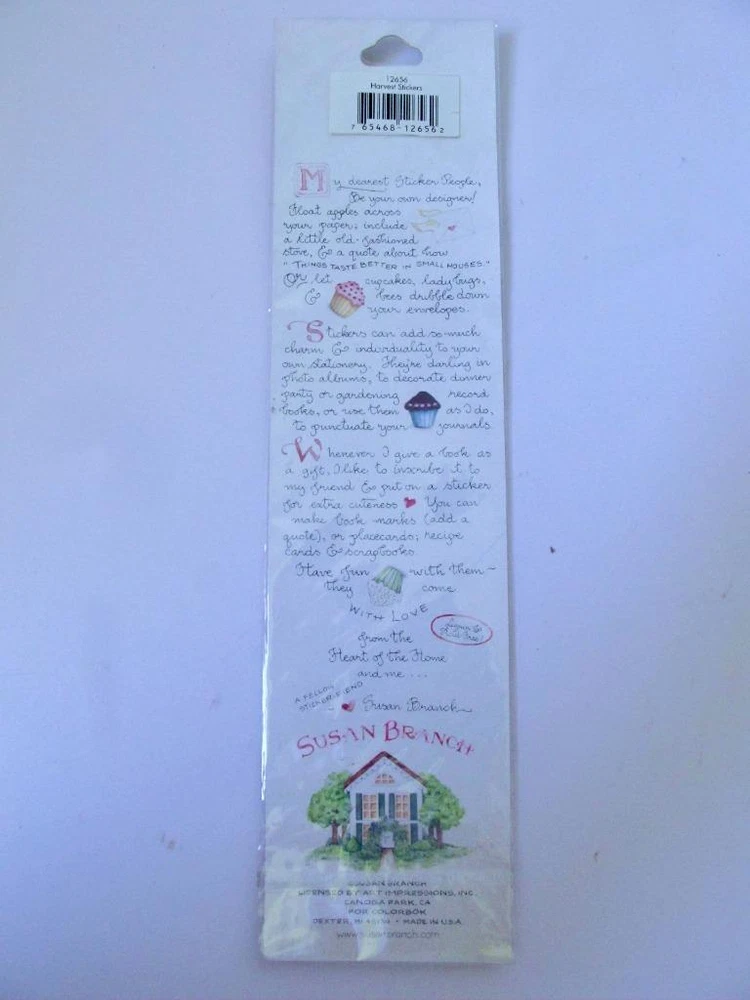 12656
Harvest Stickers
7 65468-12656 2
My dearest Sticker People,
Be your own designer!
Float apples across
your paper; include
a little old-fashioned
stove, & a quote about how
"THINGS TASTE BETTER IN SMALL HOUSES."
Or let cupcakes, ladybugs,
& bees dribble down
your envelopes.
Stickers can add so much
charm & individuality to your
own stationery. They're darling in
photo albums, to decorate dinner
party or gardening record
books, or use them as I do,
to punctuate your journals.
Whenever I give a book as
a gift, I like to inscribe it to
my friend & put on a sticker
for extra cuteness You can
make book marks (add a
quote), or placecards; recipe
cards & scrapbooks.
Have fun with them~
they come
WITH LOVE
Lignin &
Acid-Free!
from the
Heart of the Home
and me ...
A FELLOW
STICKER-FIEND
Susan Branch
SUSAN BRANCH
SUSAN BRANCH
LICENSED BY ART IMPRESSIONS, INC.
CANOGA PARK, CA
FOR COLORBÖK
DEXTER, MI • MADE IN U.S.A.
www.susanbranch.com